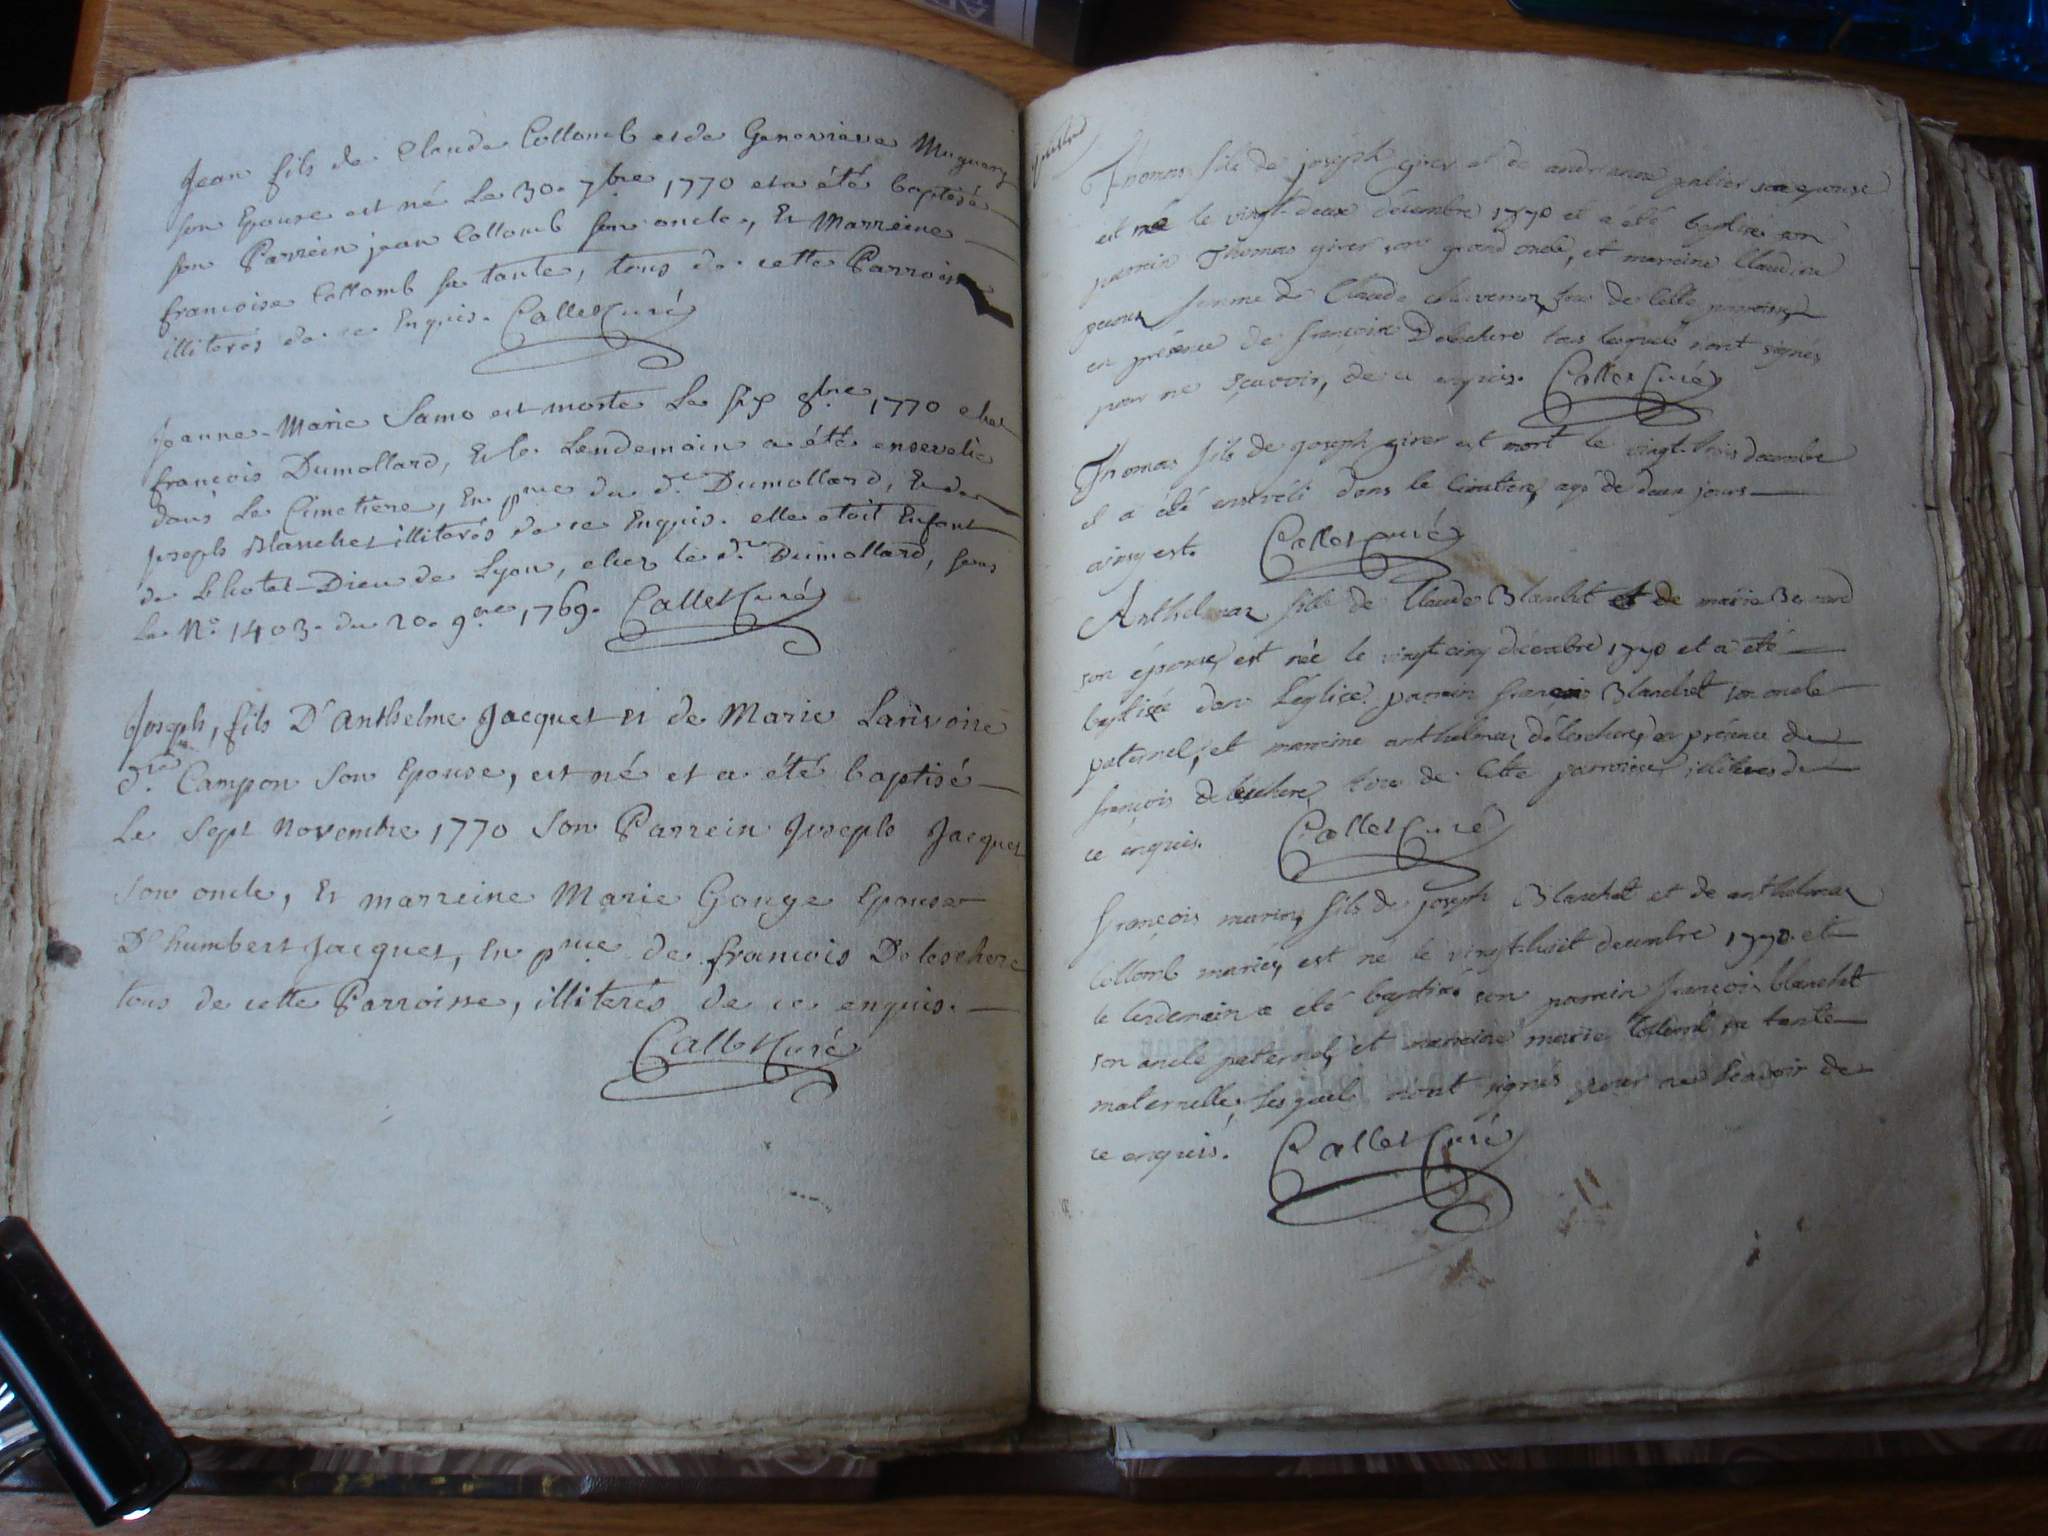 Jean fils de Claude Collomb et de Geneviève
son Epouse est né Le 30. 7bre 1770 et a été baptisé
son Parrein jean Collomb son oncle, Et Marreine
francoise Collomb sa tante, tous de cette Parroisse
illiterés de ce Enquis. Callet Curé
Jeanne-Marie Samo est morte Le six 8bre 1770 chez
françois Dumollard, Et le Lendemain a été ensevelie
dans Le Cimetière, En pnce du d.t Dumollard, Et de
Joseph Blanchet illiterés de ce Enquis. elle etoit Enfant
de Lhotel-Dieu de Lyon, chez le d.t Dumollard, sous
Le N.o 1403. du 20. 9bre 1769. Callet Curé
Joseph, fils D'Anthelme Jacquet Et de Marie Larivoire
d.te Campon Son Epouse, est né et a été baptisé
Le Sept Novembre 1770 Son Parrein Joseph Jacquet
Son oncle, Et marreine Marie Gonge Epouse
D'humbert Jacquet, En pnce de françois Deleschere
tous de cette Parroisse, illiterés de ce enquis.
Callet Curé
Thomas fils de joseph girer et de palier son epouse
est né le vingt-deux décembre 1770 et a été baptisé son
parrein Thomas girer son grand oncle, et mareine Claudine
femme de Claude tous de Cette paroisse
en présence de françois Deleschere tous lesquels n'ont signés
pour ne sçavoir, de ce enquis. Callet Curé
Thomas fils de joseph girer est mort le vingt-trois decembre
il a été enseveli dans le Cimetiere, agé de deux jours
ainsy est. Callet Curé
Anthelmaz fille de Claude Blanchet et de marie
son épouse, est née le vingt cinq décembre 1770 et a été
baptisée dans L'église, parrain françois Blanchet son oncle
paternel, et marreine anthelmaz deleschere, en présence de
françois deleschere, tous de Cette parroisse illiterés de
ce enquis. Callet Curé
françois marin, fils de joseph Blanchet et de anthelmaz
Collomb mariés, est né le vingt-huit decembre 1770. et
le lendemain a été baptisé son parrein françois blanchet
son oncle paternel, et marreine marie Collomb sa tante
maternelle, Lesquels n'ont signés pour ne Sçavoir de
ce enquis. Callet Curé